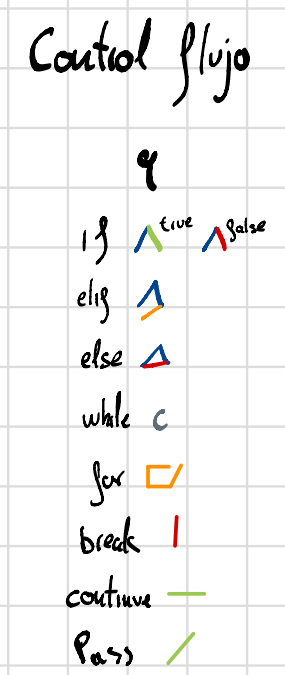 Control flujo
q
if true false
elif
else
while c
for
break
continue
Pass